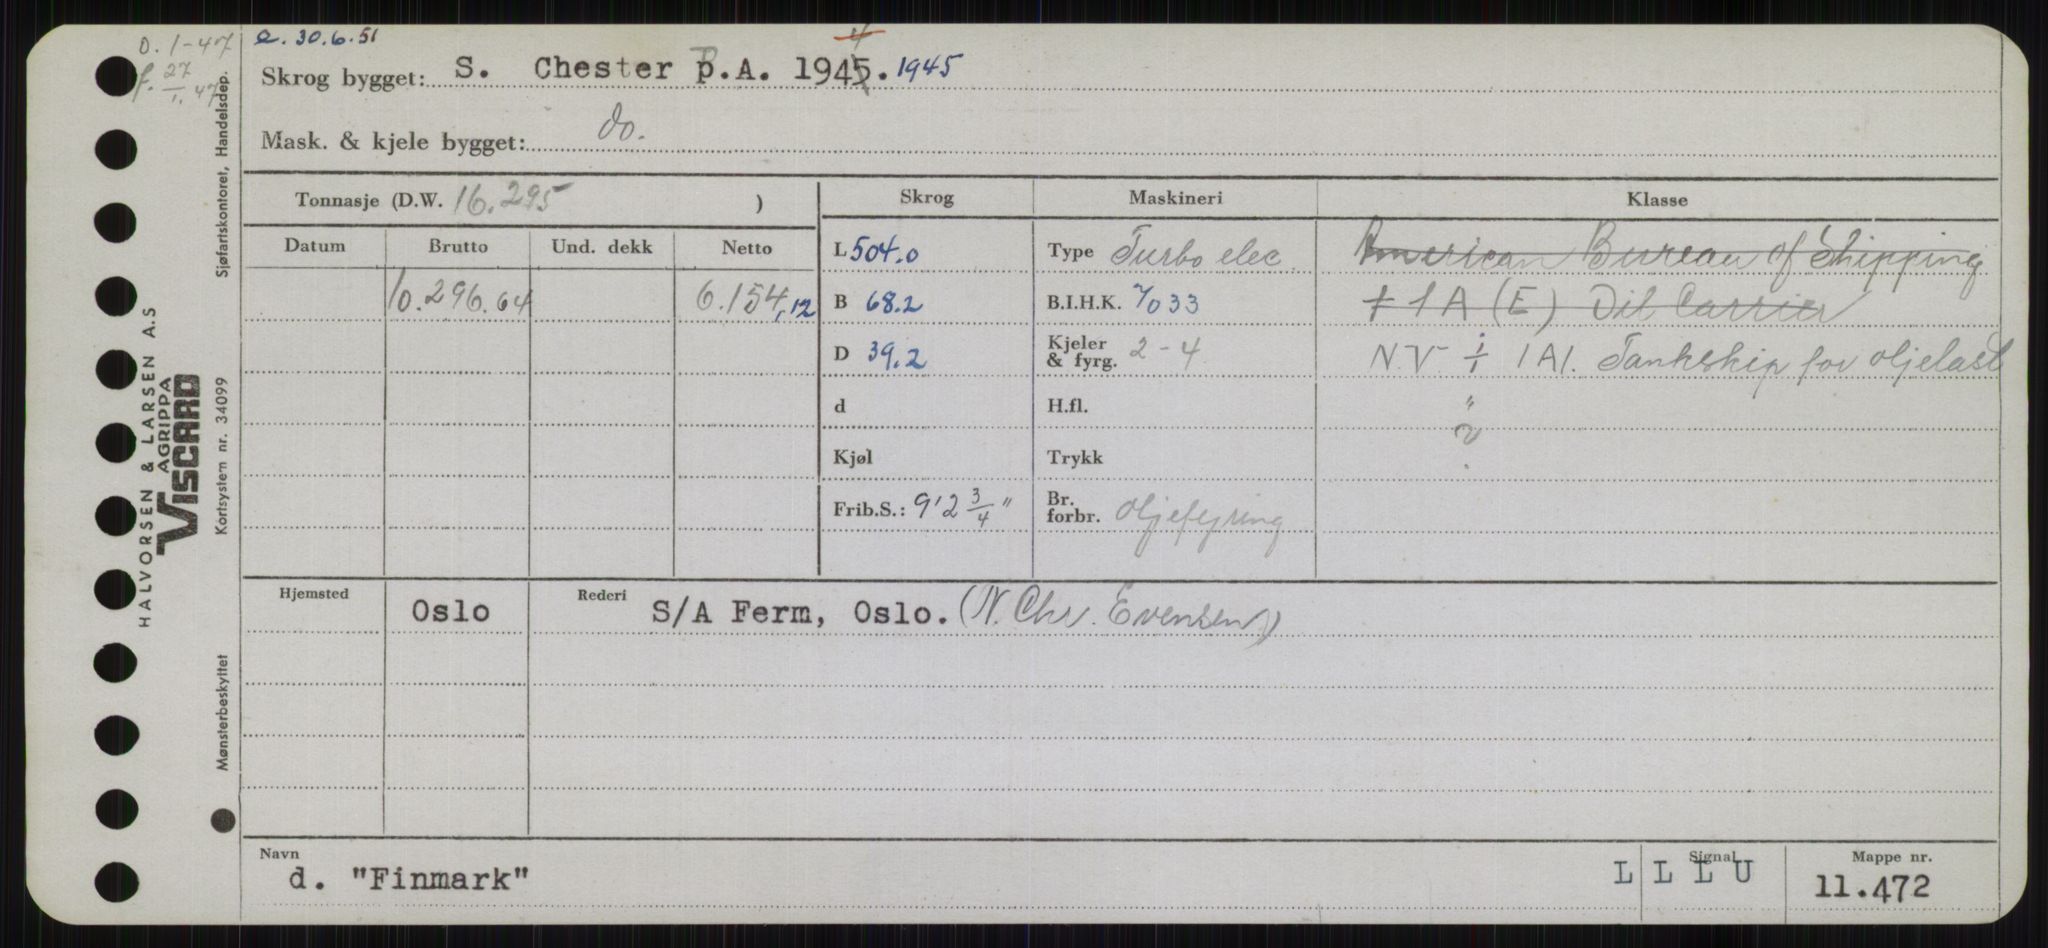 O. 1-47
f. 27/1. 47
e. 30.6.51
Skrog bygget: S. Chester p.A. 1945. 4 1945
Mask. & kjele bygget: do.
Tonnasje (D.W. 16.295 )
Skrog Maskineri Klasse
Datum Brutto Und. dekk Netto
10.296.64 6.154,12
L 504.0
B 68.2
D 39.2
d
Kjøl
Frib.S.: 9'2 3/4"
Type Turbo elec.
B.I.H.K. 7033
Kjeler & fyrg. 2-4
H.fl.
Trykk
Br. forbr. Oljefyring
American Bureau of Shipping
+ 1 A (E) Oil Carrier
N.V. + 1A1. Tankskip for oljelast
"
Hjemsted Oslo
Rederi S/A Ferm, Oslo. (N. Chr. Evensen)
Navn d. "Finmark"
Signal L L L U
Mappe nr. 11.472
HALVORSEN & LARSEN A.S
AGRIPPA
VISCARD
Sjøfartskontoret, Handelsdep.
Kortsystem nr. 34099
Mønsterbeskyttet